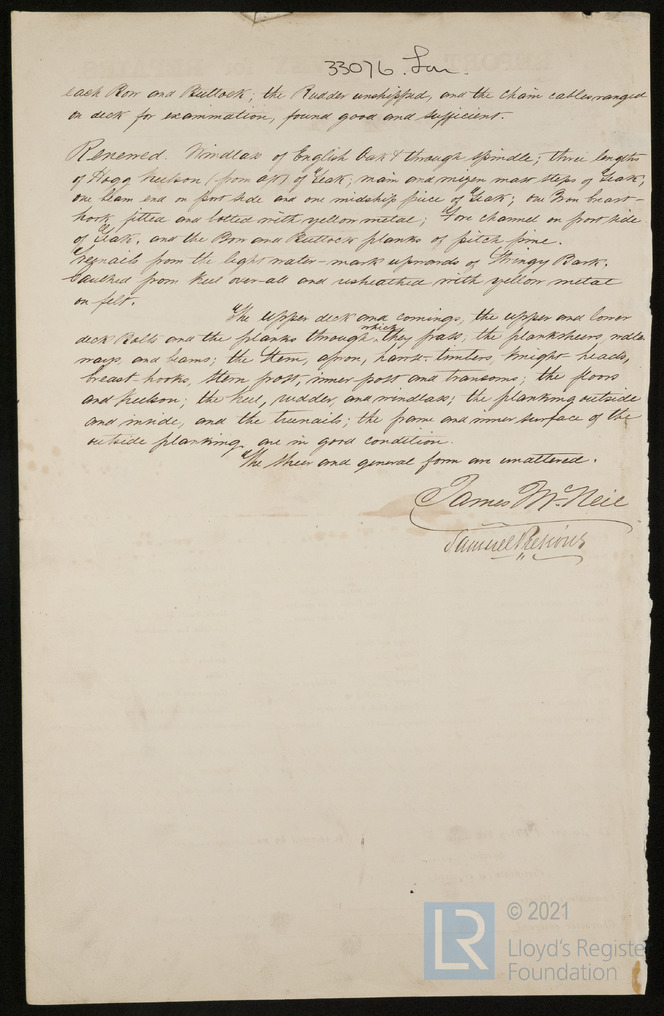 33076. Lon.
each Bow and Buttock; the Rudder unshipped, and the chain cables ranged
on deck for examination, found good and sufficient.
Renewed. Windlass of English Oak & through spindle; three lengths
of Hogg keelson (from aft) of Teak; main and mizen mast steps of Teak;
one beam end on port side and one midship piece of Teak; one Iron breast-
hook fitted and bolted with yellow metal; Fore channel on port side
of Teak, and the Bow and Buttock planks of pitch pine.
Treenails from the light water-mark upwards of Stringy Bark.
Caulked from keel over-all and resheathed with yellow metal
on felt.
The upper deck and comings, the upper and lower
deck Bolts and the planks through which they pass; the planksheers,
ways, and beams; the Stem, apron, hawse-timbers, knight-heads,
breast-hooks, Stern post, inner post and transoms; the floors
and keelson; the keel, rudder, and windlass; the planking outside
and inside, and the treenails; the frame and inner surface of the
outside planking are in good condition.
The sheer and general form are unaltered.
James McNeil
Samuel
© 2021
LR
Lloyd's Register
Foundation